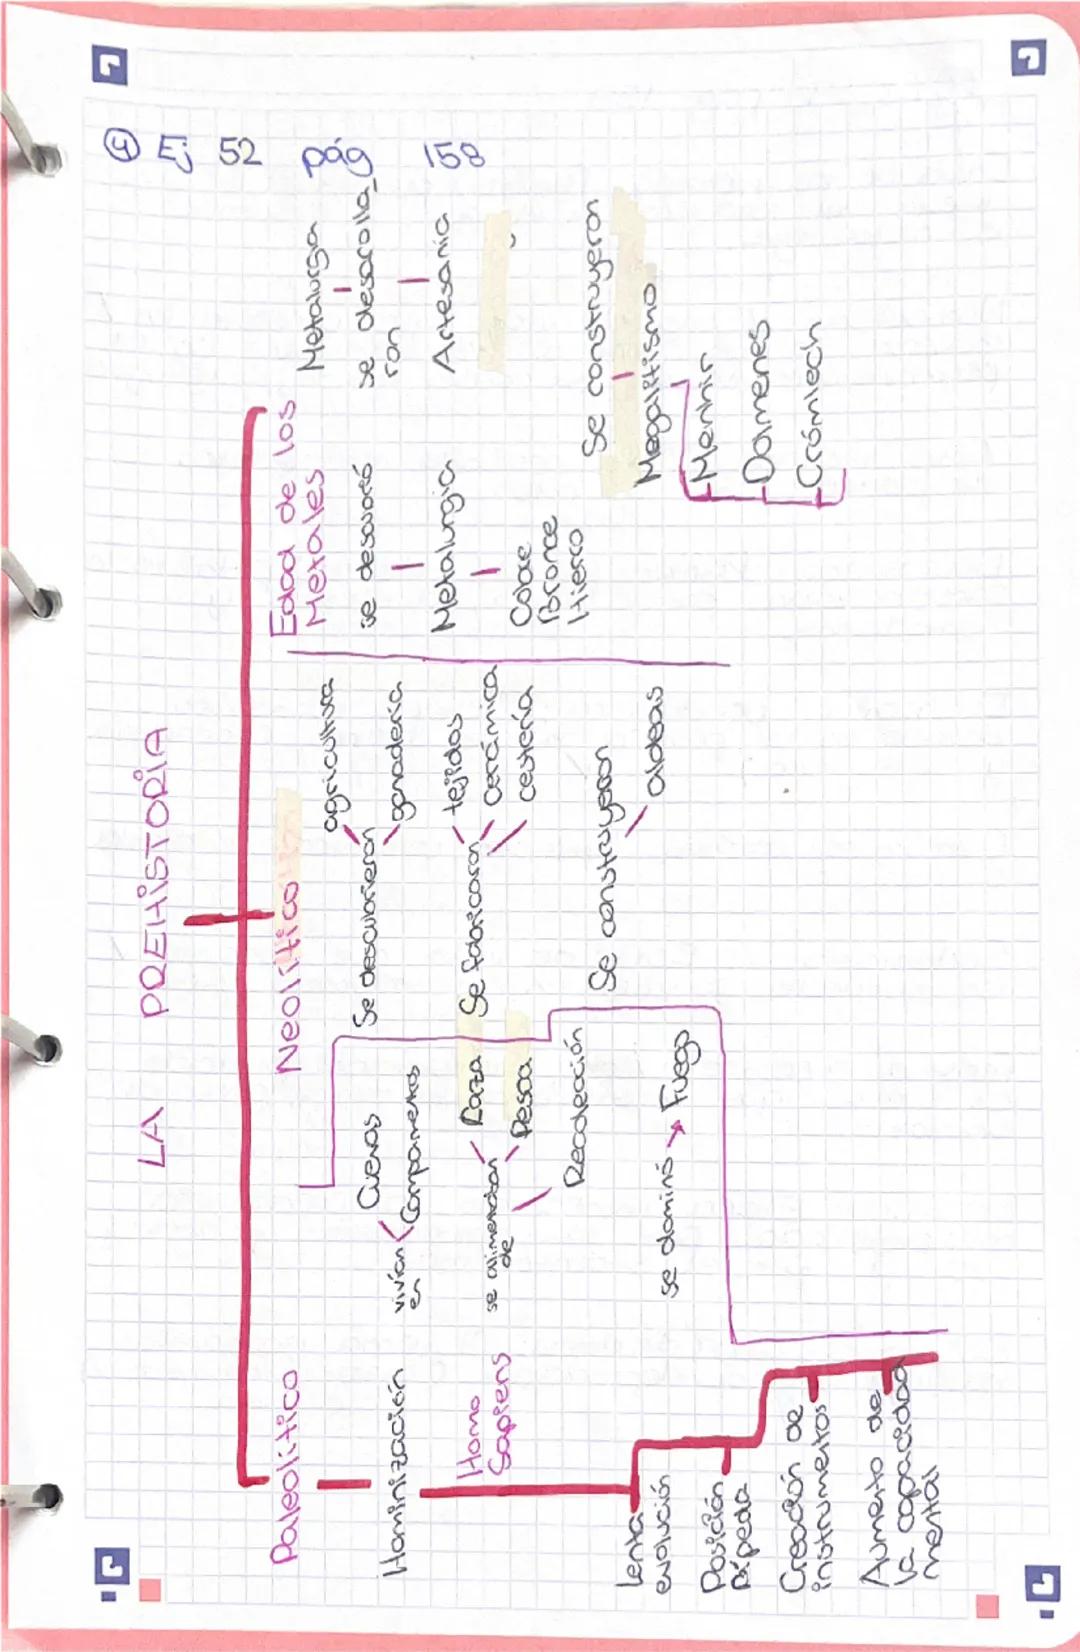 ④ Ej 52 pág 158
LA PREHISTORIA
Paleolítico
Hominización
Homo
Sapiens
Lenta
evolución
Posición
Bípeda
Creación de
instrumentos
Aumento de
la capacidad
mental
vivían
en
Cuevas
Campamentos
se alimentaban
de
Caza
Pesca
Recolección
se dominó → Fuego
Neolítico
Se descubrieron
agricultura
ganadería
Se fabricaron
tejidos
cerámica
cestería
Se construyeron
aldeas
Edad de los
Metales
se desarrolló
Metalurgia
Cobre
Bronce
Hierro
Metalurgia
se desarolla_
ron
Artesanía
Se construyeron
Megalitismo
Menhir
Dolmenes
Crómlech